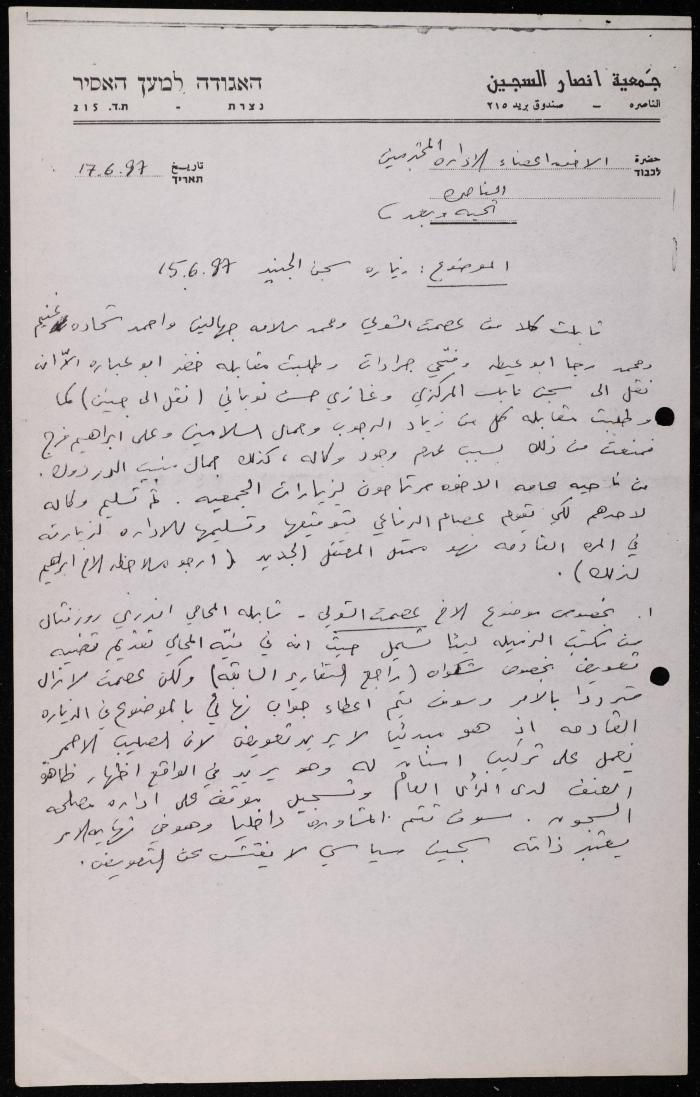 جمعية انصار السجين האגודה למען האסיר
الناصره – صندوق بريد ٢١٥ נצרת - ת.ד. 215
حضرة الاخوه اعضاء الاداره المحترمين تاريخ 17.6.87
לכבוד תאריך
الناصره
تحيه وبعد،
الموضوع: زياره سجن الجنيد 15.6.87
قابلت كلا من عصمت الشولي ومحمد سلامه جهالين واحمد شحاده غنيم
ومحمد رجا ابو عيطه وفتحي جرادات وطلبت مقابله خضر ابو عباره الا ان
نقل الى سجن نابلس المركزي وغازي حسن نوباني (نقل الى جنين) كما
وطلبت مقابله كل من زياد الرجوب وجمال السلامين وعلى ابراهيم فرج
فمنعت من ذلك بسبب عدم وجود وكاله، كذلك جمال منيب الدردوك.
من ناحيه عامه الاخوه مرتاحون لزيارات الجمعيه. تم تسليم وكاله
لاحدهم لكي يقوم عصام الرفاعي بتوقيعها وتسليمها للاداره لزيارته
في المره القادمه فهو ممثل المعتقل الجديد (ارجو ملاحظه الاخ ابراهيم
لذلك).
١. بخصوص موضوع الاخ عصمت الشولي - قابله المحامي اندري روزنتال
من مكتب الزميله ليئا تسيمل حيث انه في نيه المحامي تقديم قضيه
تعويض بخصوص شكواه (راجع التقارير السابقة) ولكن عصمت لا زال
مترددا بالامر وسوف يتم اعطاء جواب نهائي بالموضوع في الزياره
القادمه اذ هو مبدئيا لا يريد تعويض لان الصليب الاحمر
يعمل على تركيب اسنان له وهو يريد في الواقع اظهار ظاهرة
العنف لدى الرأي العام وتسجيل موقف على اداره مصلحه
السجون. سوف تتم المشاوره داخليا وهو في نهايه الامر
يعتبر ذاته سجين سياسي لا يفتش عن التعويض.